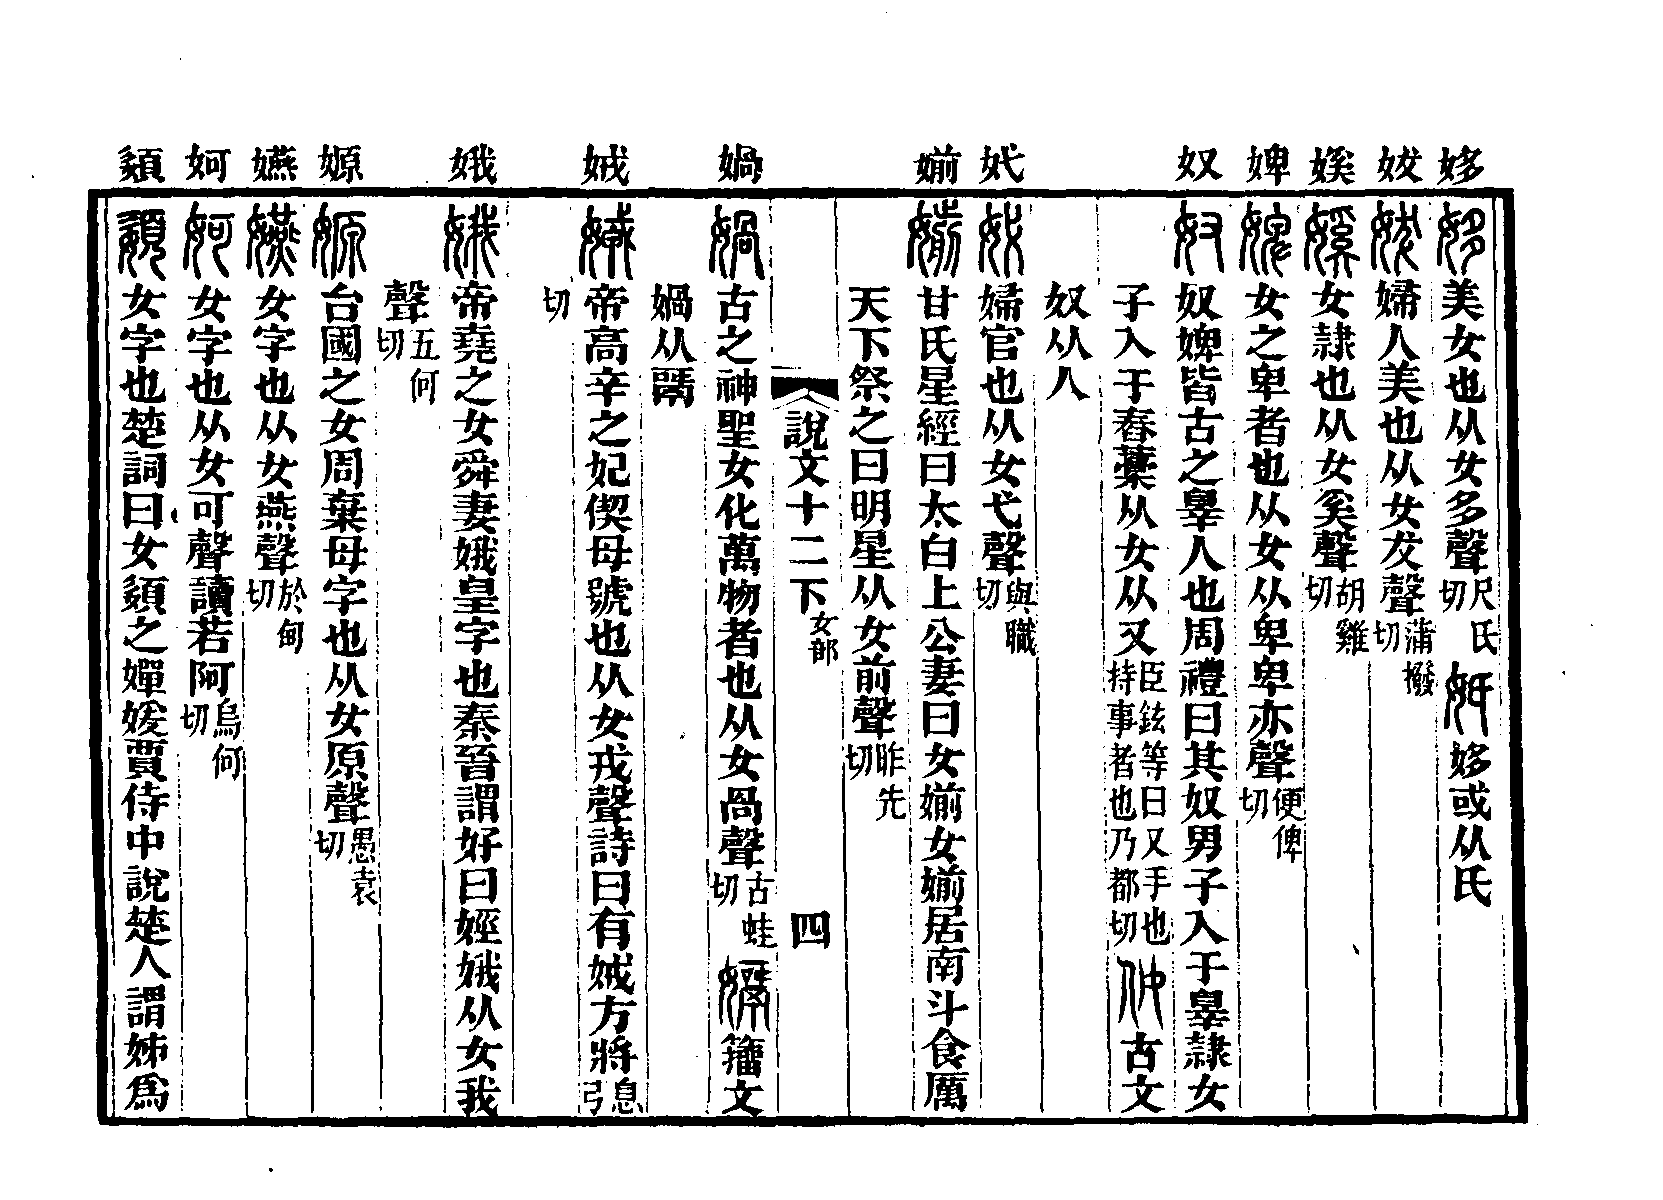 姼 美女也从女多聲尺氏切 姄 姼或从氏
妭 婦人美也从女犮聲蒲撥切
媄 女隷也从女奚聲胡雞切
婢 女之卑者也从女从卑卑亦聲便俾切
奴 奴婢皆古之辠人也周禮曰其奴男子入于辠隷女
子入于舂藁从女从又臣鉉等曰又手也持事者也乃都切 㚢 古文
奴从人
妷 婦官也从女弋聲與職切
媊 甘氏星經曰太白上公妻曰女媊女媊居南斗食厲
天下祭之曰明星从女前聲昨先切
說文十二下 女部 四
媧 古之神聖女化萬物者也从女咼聲古蛙切 籒文
媧从𩰬
娀 帝高辛之妃偰母號也从女戎聲詩曰有娀方將息弓
切
娥 帝堯之女舜妻娥皇字也秦晉謂好曰娙娥从女我
聲五何切
嫄 台國之女周棄母字也从女原聲愚袁切
嬿 女字也从女燕聲於甸切
妸 女字也从女可聲讀若阿烏何切
媭 女字也楚詞曰女媭之嬋媛賈侍中說楚人謂姊爲